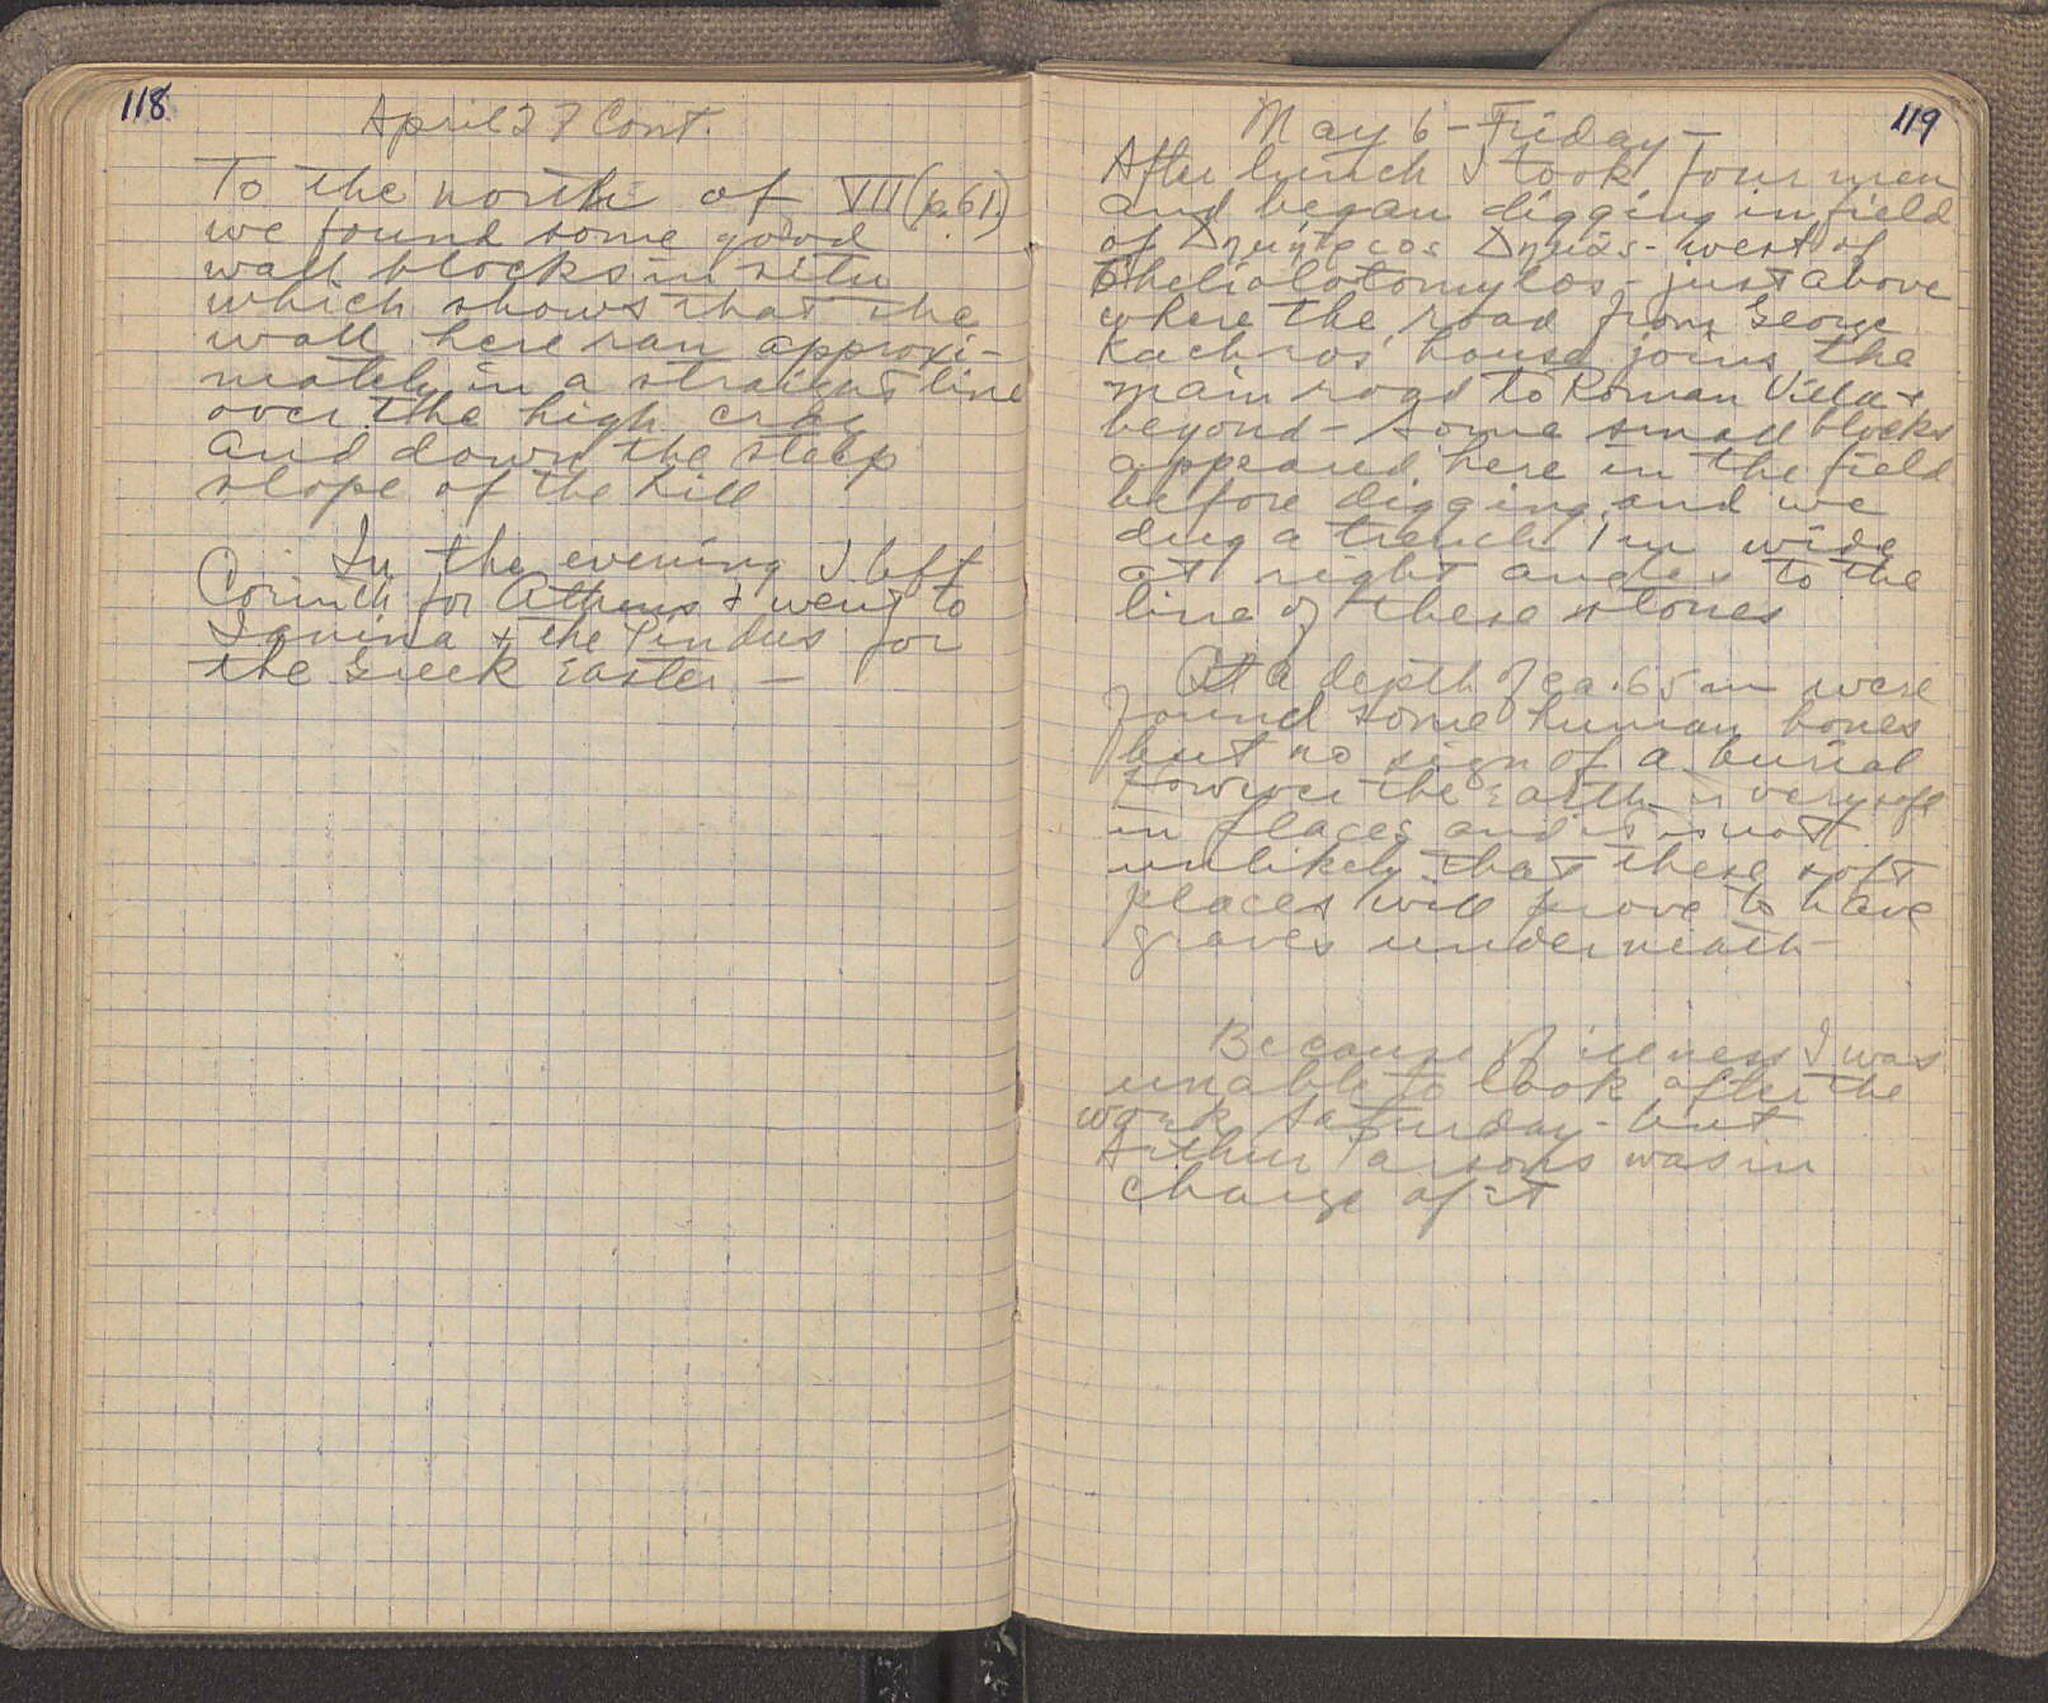 118
April 27 Cont.
To the north of VII (p. 61)
we found some good
wall blocks in situ
which shows that the
wall here ran approxi-
mately in a straight line
over the high crag
and down the steep
slope of the hill
In the evening I left
Corinth for Athens & went to
Janina & the Pindus for
the Greek Easter —
119
May 6 - Friday -
After lunch I took four men
and began digging in field
of Δημήτριος Δημᾶς - west of
Cheliotomylos - just above
where the road from George
Kachros' house joins the
main road to Roman Villa &
beyond - some small blocks
appeared here in the field
before digging and we
dug a trench 1 m wide
at right angles to the
line of these stones
At a depth of ca .65 m were
found some human bones
but no sign of a burial
However the earth is very soft
in places and it is not
unlikely that these soft
places will prove to have
graves underneath -
Because of illness I was
unable to look after the
work Saturday - but
Arthur Parsons was in
charge of it